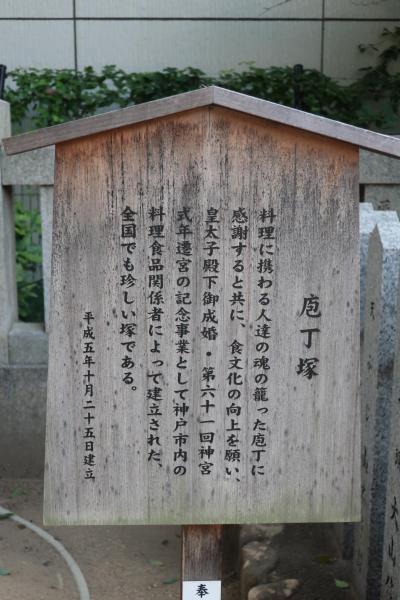 庖丁塚
料理に携わる人達の魂の籠った庖丁に
感謝すると共に、食文化の向上を願い、
皇太子殿下御成婚・第六十一回神宮
式年遷宮の記念事業として神戸市内の
料理食品関係者によって建立された、
全国でも珍しい塚である。
平成五年十月二十五日建立
奉